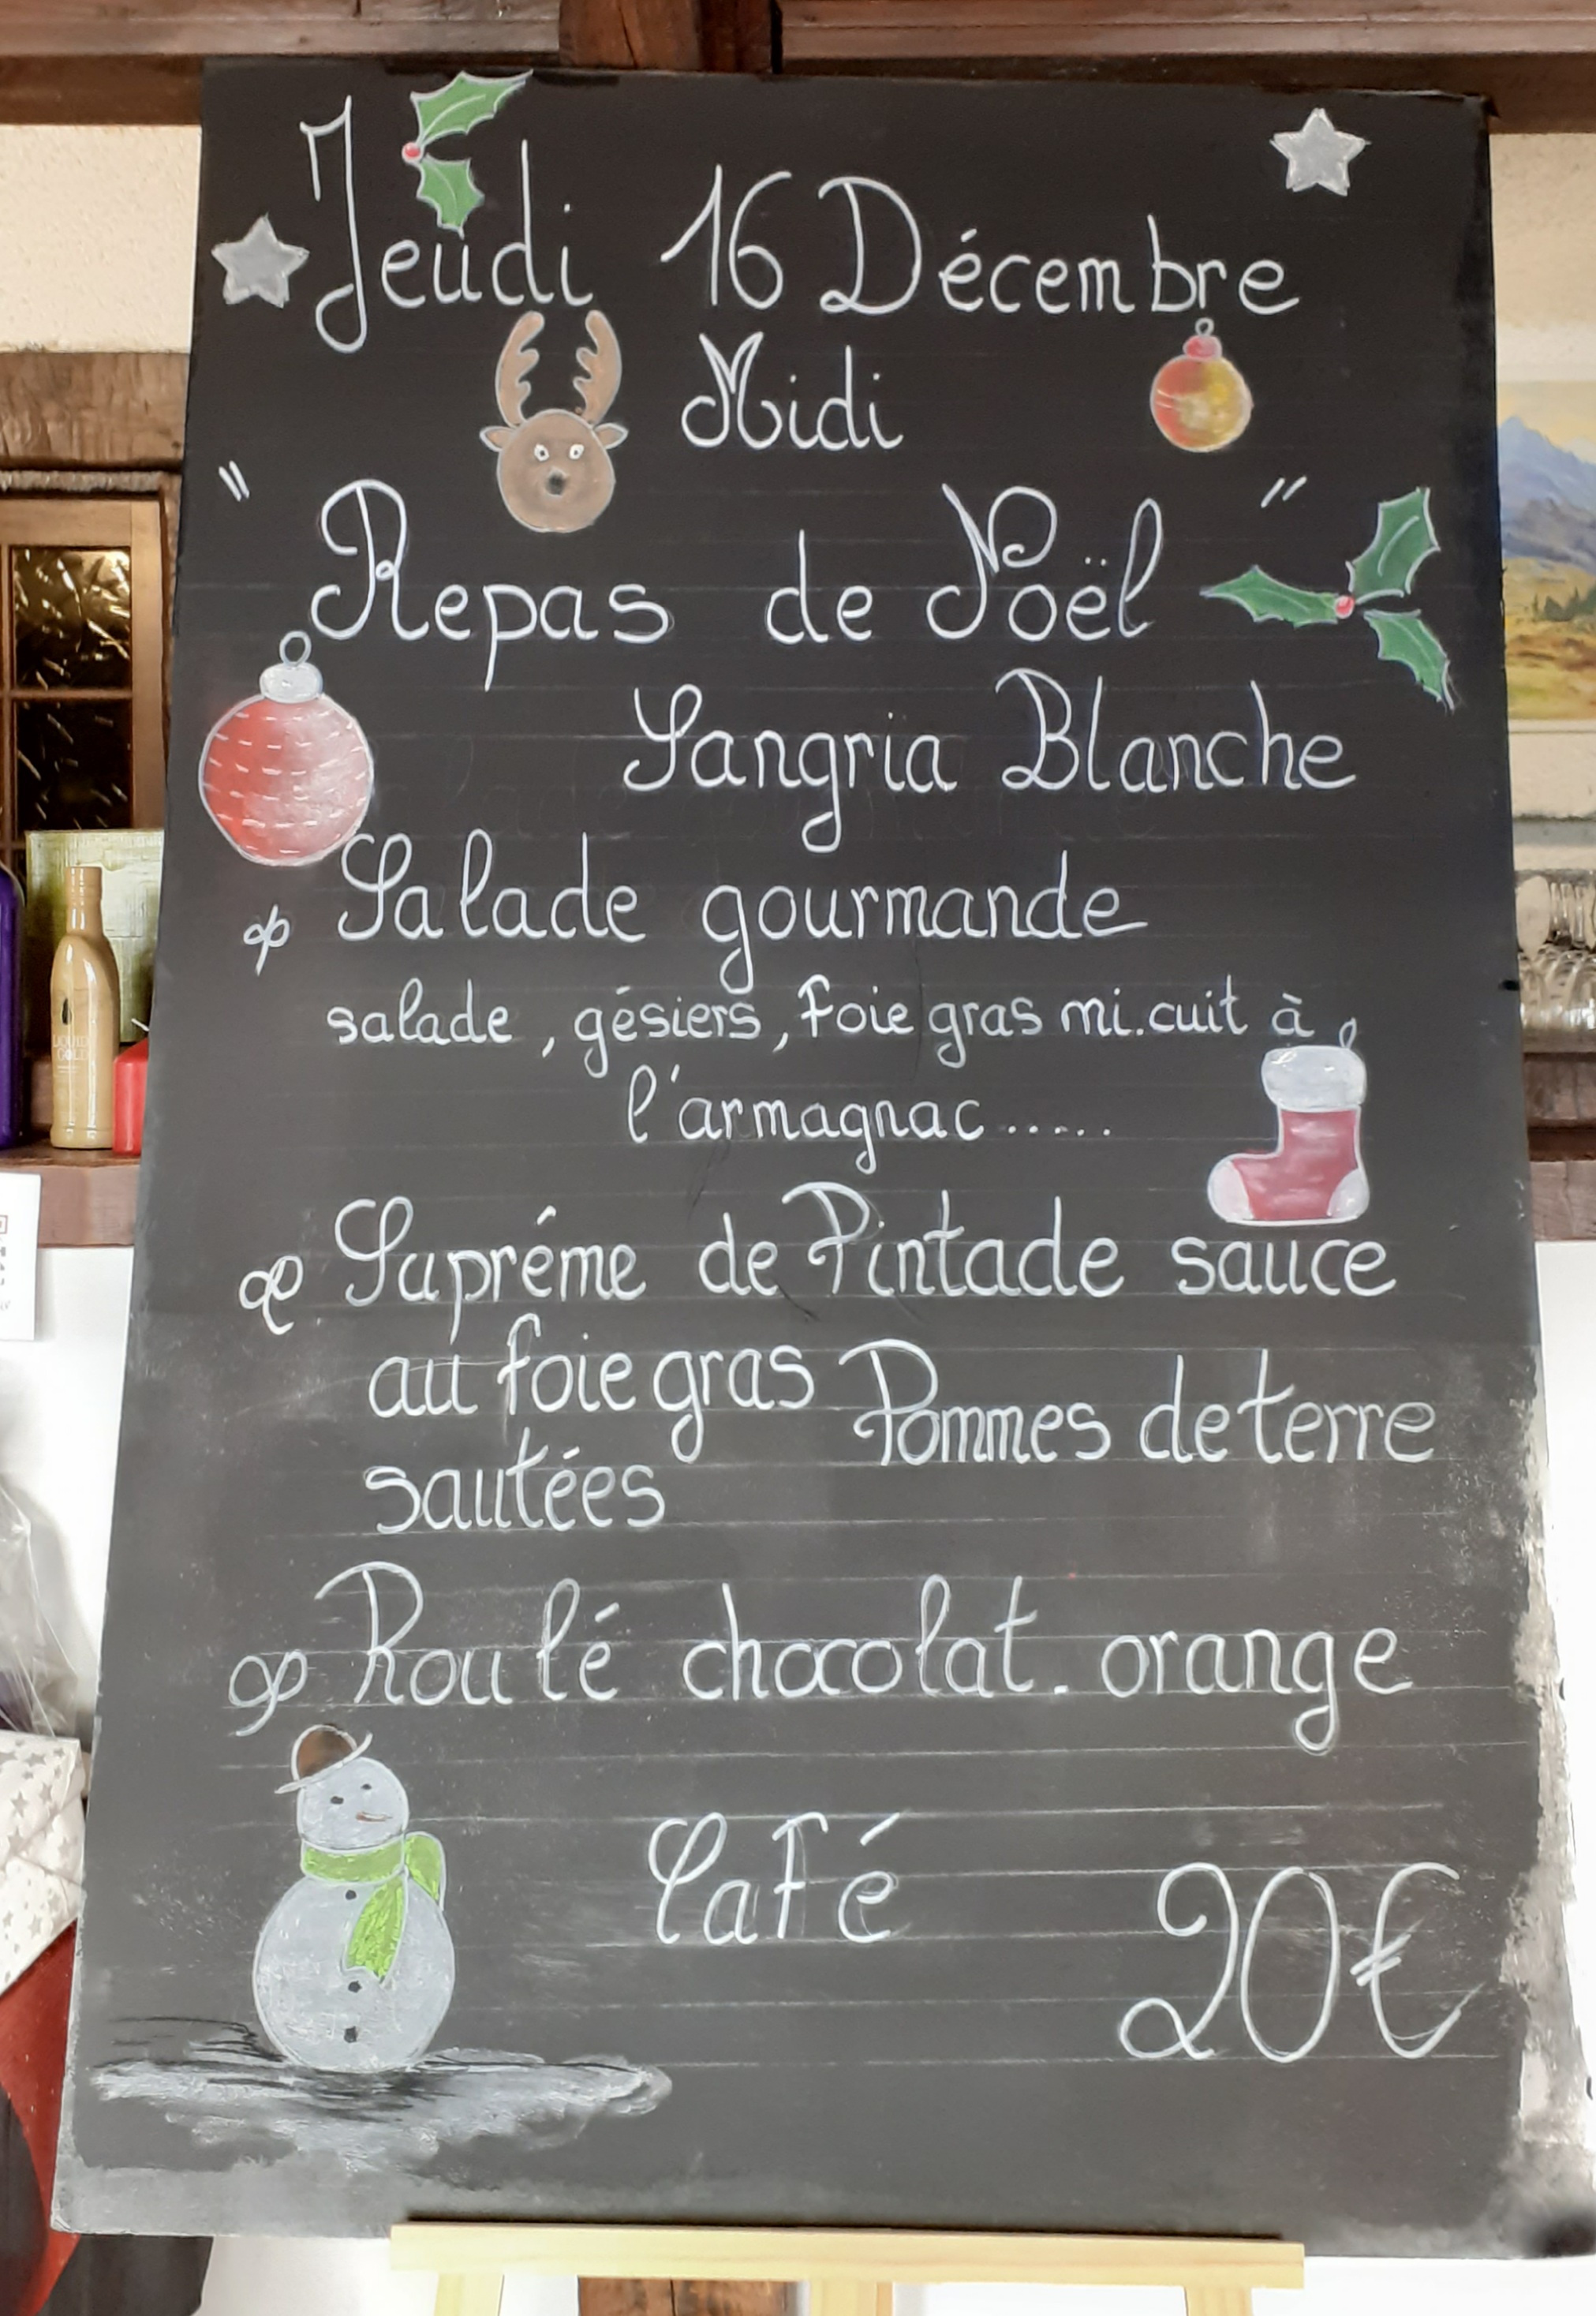 Jeudi 16 Décembre
Midi
" Repas de Noël "
Sangria Blanche
Salade gourmande
salade, gésiers, foie gras mi.cuit à
l'armagnac.....
Supréme de Pintade sauce
au foie gras Pommes de terre
sautées
Roulé chocolat. orange
Café
20€
LIQUID
GOLD